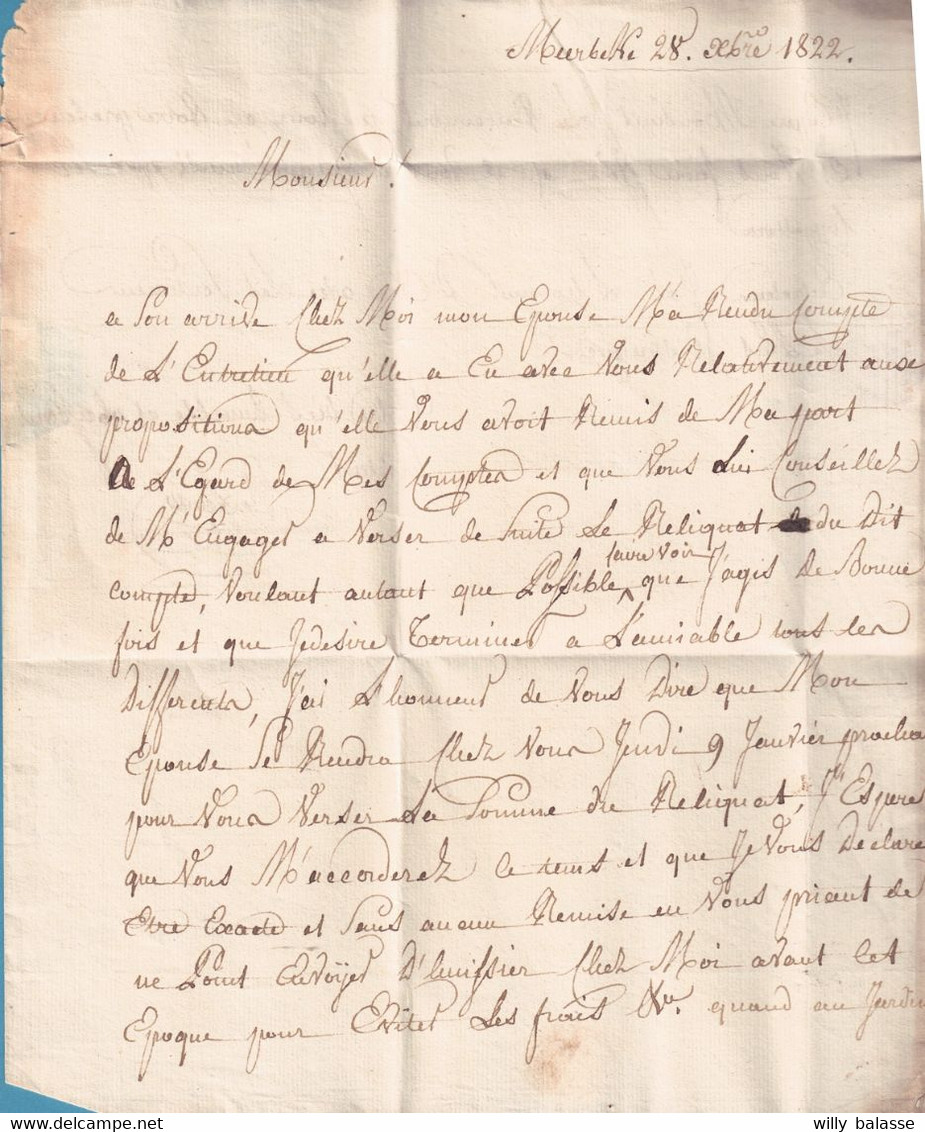 Meerbeke 28. Xbre 1822.
Monsieur!
a Son arrivée Chez Moi mon Epouse M'a Rendu Compte
de L'Entretien qu'elle a Eu avec Vous Relativement aux
propositions qu'elle Vous avoit Remis de Ma part
de L'Egard de Mes Comptes et que Vous Lui Conseillez
de M'Engager a Verser de Suite Le Reliquat du Dit
compte, Voulant autant que Possible, faire voir que J'agis de Bonne
fois et que Je desire Terminer a L'amiable tous les
Differents, J'ai L'honneur de Vous Dire que Mon
Epouse Se Rendra Chez Vous Jeudi 9 Janvier prochain
pour Vous Verser La Somme du Reliquat, J'Espere
que Vous M'accorderez ce tems et que Je Vous Declare
Etre Exacte et Sans aucun Remise en Vous priant de
ne Point Envoyer D'huissier Chez Moi avant Cet
Epoque pour Eviter Les frais &a. quand au Jardin
willy balasse